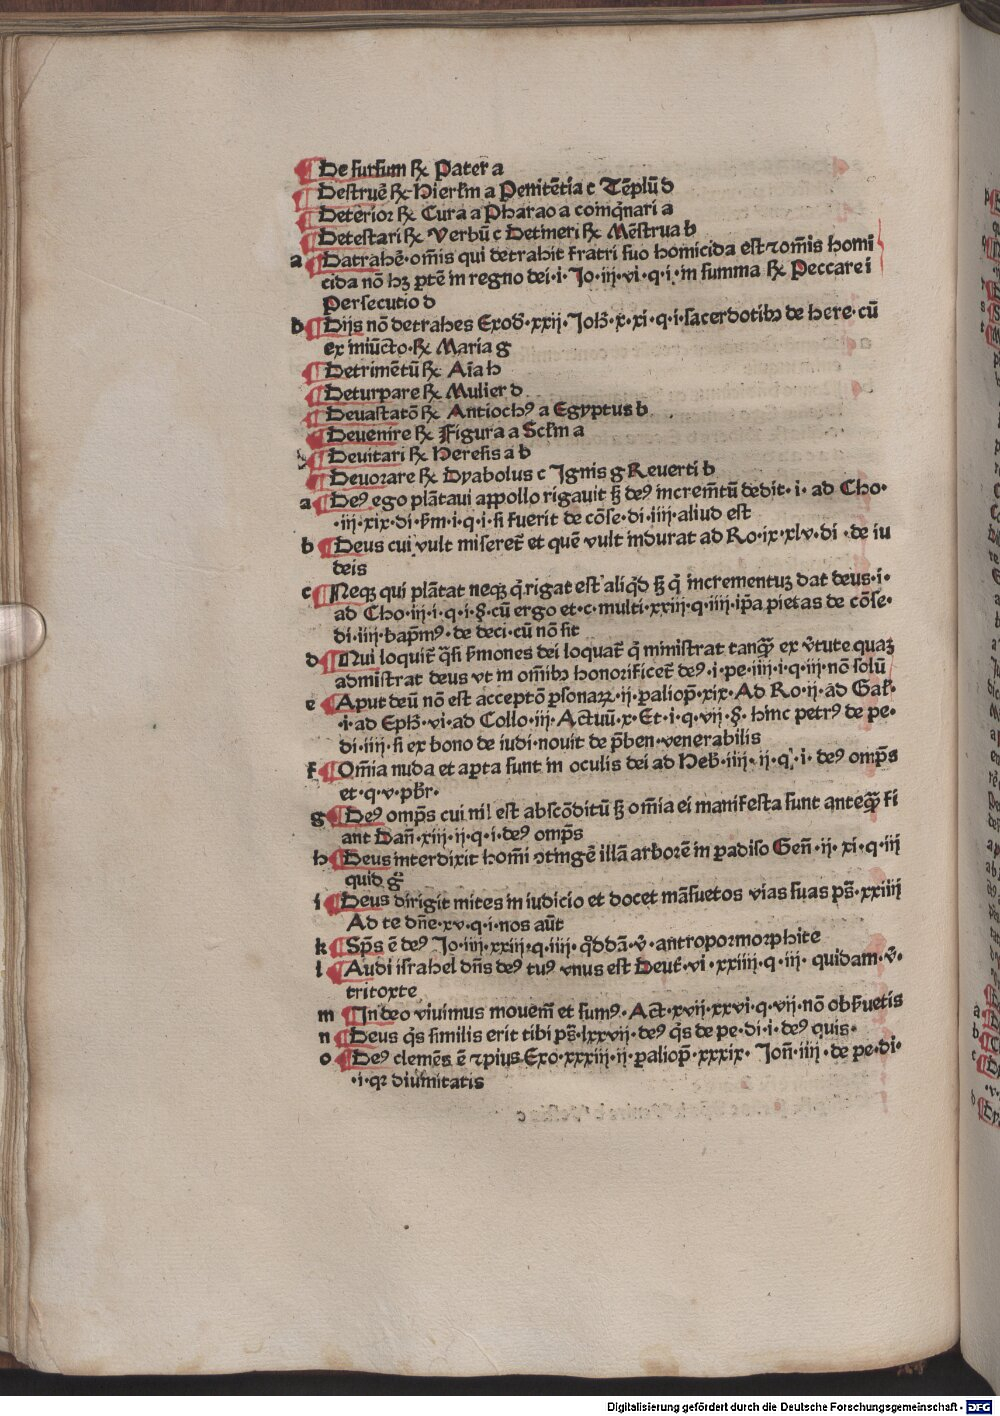 ¶De sursum ℞ Pater a
¶Destruē ℞ Hierl̄m a Penitētia c Tēplū d
¶Deterior ℞ Cura a Pharao a comq̄nari a
¶Detestari ℞ Verbū c Detineri ℞ Mēstrua b
a ¶Datrahē· om̄is qui detrahit fratri suo homicida est ⁊ om̄is homi
cida nō hꝫ ptē in regno dei·i·Jo·iij·vi·q·i·in summa ℞ Peccare i
Persecutio d
b ¶Dijs nō detrahes Exod̄·xxij·Joh̄·x·xi·q·i·sacerdotibꝫ de here·cū
ex iniūcto·℞ Maria g
¶Detrimētū ℞ Aīa h
¶Deturpare ℞ Mulier d
¶Deuastatō ℞ Antiochꝰ a Egyptus b
¶Deuenire ℞ Figura a Scl̄m a
¶Deuitari ℞ Heresis a b
¶Deuorare ℞ Dyabolus c Ignis g Reuerti b
a ¶Deꝰ ego plātaui appollo rigauit sꝫ deꝰ increm̄tū dedit·i·ad Cho·
·iij·xix·di·s̄m·i·q·i·si fuerit de cōse·di·iiij·aliud est
b ¶Deus cui vult miseret̄ et quē vult indurat ad Ro·ix·xlv·di·de iu
deis
c ¶Neqꝫ qui plātat neqꝫ q̄ rigat est aliq̄d sꝫ q̄ incrementuꝫ dat deus·i·
ad Cho·iij·i·q·i·§·cū ergo et·c·multi·xxiij·q·iiij·ip̄a pietas de cōse·
di·iiij·bap̄mꝰ·de deci·cū nō sit
d ¶Qui loquit̄ q̄si s̄mones dei loquat̄ q̄ ministrat tanq̄ȝ ex v̄tute quaꝫ
admistrat deus vt in om̄ibꝫ honorificet̄ deꝰ·i·pe·iiij·i·q·iij·nō solū
e ¶Aput deū nō est acceptō ꝑsonaꝝ·ij·paliop̄·xix·Ad Ro·ij·ad Gal̄·
·i·ad Eph̄·vi·ad Collo·iij·Actuū·x·Et·i·q·vij·§·hinc petrꝰ de pe·
di·iiij·si ex bono de iudi·nouit de p̄ben·venerabilis
f ¶Om̄ia nuda et apta sunt in oculis dei ad Heb̄·iiij·ij·q·i·deꝰ omp̄s
et·q·v·pb̄r·
g ¶Deꝰ omp̄s cui nil est abscōditū sꝫ om̄ia ei manifesta sunt anteq̄ȝ fi
ant Dan̄·xiij·ij·q·i·deꝰ omp̄s
h ¶Deus interdixit homi ꝯtingē illā arborē in padiso Gen̄·ij·xi·q·iij
quid g̊
i ¶Deus dirigit mites in iudicio et docet māsuetos vias suas ps̄·xxiiij
Ad te dn̄e·xv·q·i·nos aūt
k ¶Sp̄s ē deꝰ Jo·iiij·xxiij·q·iiij·q̄ddā·v̄·antropormorphite
l ¶Audi israhel dn̄s deꝰ tuꝰ vnus est Deut̄·vi·xxiiij·q·iij·quidam·v̄·
tritoxte
m ¶In deo viuimus mouem̄ et sumꝰ·Act̄·xvij·xxvi·q·vij·nō obs̄uetis
n ¶Deus q̄s similis erit tibi ps̄·lxxvij·deꝰ q̄s de pe·di·i·deꝰ quis·
o ¶Deꝰ clemēs ē ⁊ pius Exo·xxxiij·ij·paliop̄·xxxix·Jon̄·iiij·de pe·di·
·i·qꝛ diuinitatis
Digitalisierung gefördert durch die Deutsche Forschungsgemeinschaft - DFG